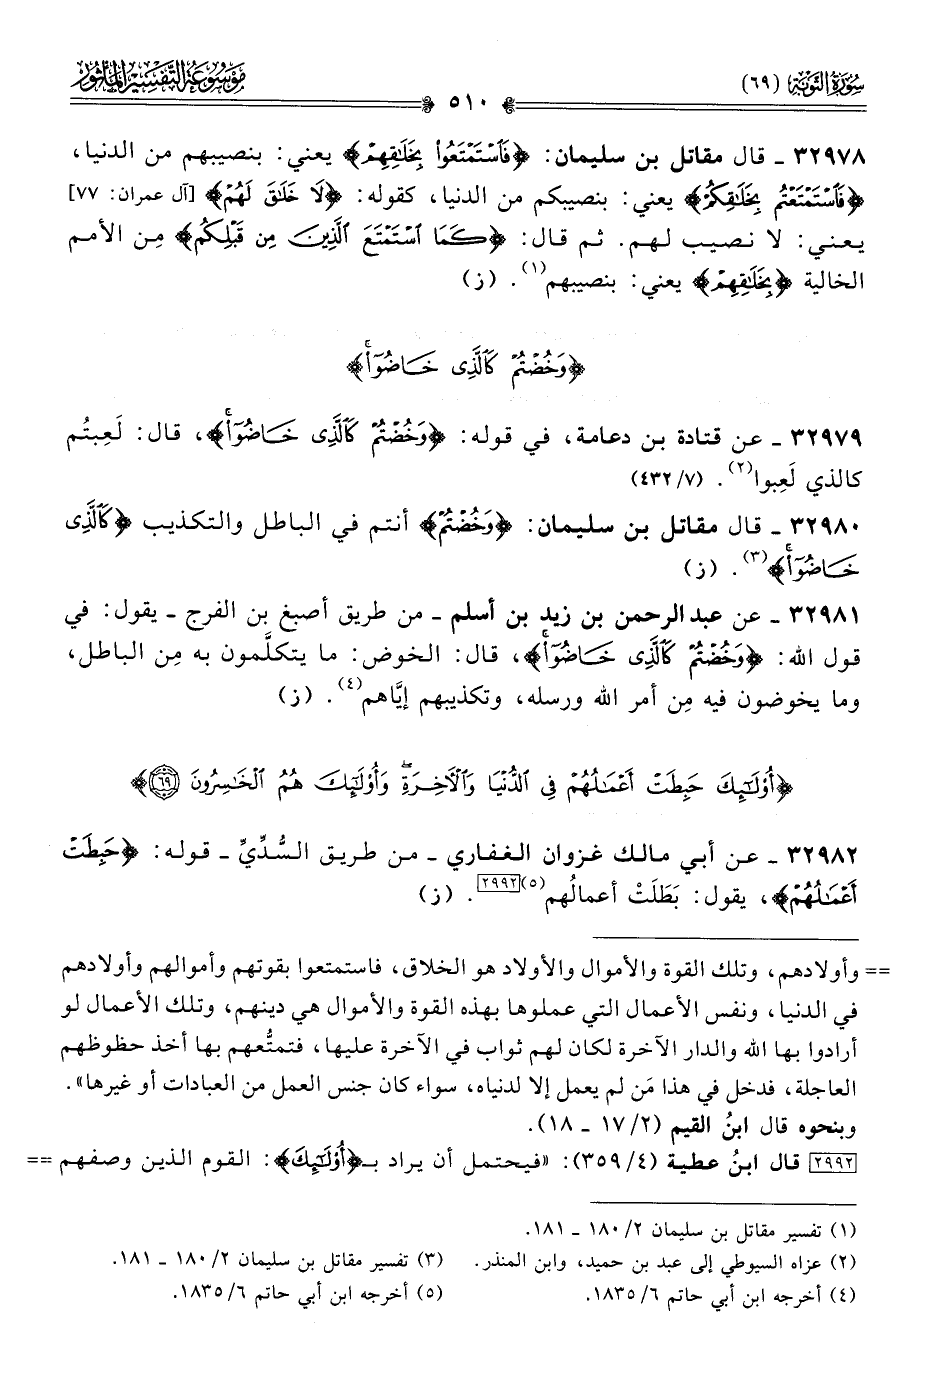 سورة التوبة (٦٩)
موسوعة التفسير المأثور
٥١٠
٣٢٩٧٨ ـ قال مقاتل بن سليمان: ﴿فَٱسْتَمْتَعُوا۟ بِخَلَـٰقِهِمْ﴾ يعني: بنصيبهم من الدنيا،
﴿فَٱسْتَمْتَعْتُم بِخَلَـٰقِكُمْ﴾ يعني: بنصيبكم من الدنيا، كقوله: ﴿لَا خَلَـٰقَ لَهُمْ﴾ [آل عمران: ٧٧]
يعني: لا نصيب لهم. ثم قال: ﴿كَمَا ٱسْتَمْتَعَ ٱلَّذِينَ مِن قَبْلِكُم﴾ مِن الأمم
الخالية ﴿بِخَلَـٰقِهِمْ﴾ يعني: بنصيبهم(١). (ز)
﴿وَخُضْتُمْ كَٱلَّذِى خَاضُوٓا۟ۚ﴾
٣٢٩٧٩ ـ عن قتادة بن دعامة، في قوله: ﴿وَخُضْتُمْ كَٱلَّذِى خَاضُوٓا۟ۚ﴾، قال: لَعِبتُم
كالذي لَعِبوا(٢). (٤٣٢/٧)
٣٢٩٨٠ ـ قال مقاتل بن سليمان: ﴿وَخُضْتُمْ﴾ أنتم في الباطل والتكذيب ﴿كَٱلَّذِى
خَاضُوٓا۟ۚ﴾(٣). (ز)
٣٢٩٨١ ـ عن عبدالرحمن بن زيد بن أسلم ـ من طريق أصبغ بن الفرج ـ يقول: في
قول الله: ﴿وَخُضْتُمْ كَٱلَّذِى خَاضُوٓا۟ۚ﴾، قال: الخوض: ما يتكلَّمون به مِن الباطل،
وما يخوضون فيه مِن أمر الله ورسله، وتكذيبهم إيَّاهم(٤). (ز)
﴿أُو۟لَـٰٓئِكَ حَبِطَتْ أَعْمَـٰلُهُمْ فِى ٱلدُّنْيَا وَٱلْـَٔاخِرَةِۖ وَأُو۟لَـٰٓئِكَ هُمُ ٱلْخَـٰسِرُونَ ٦٩﴾
٣٢٩٨٢ ـ عن أبي مالك غزوان الغفاري ـ من طريق السُّدِّيِّ ـ قوله: ﴿حَبِطَتْ
أَعْمَـٰلُهُمْ﴾، يقول: بَطَلَتْ أعمالُهم(٥)[٢٩٩٢]. (ز)
== وأولادهم، وتلك القوة والأموال والأولاد هو الخلاق، فاستمتعوا بقوتهم وأموالهم وأولادهم
في الدنيا، ونفس الأعمال التي عملوها بهذه القوة والأموال هي دينهم، وتلك الأعمال لو
أرادوا بها الله والدار الآخرة لكان لهم ثواب في الآخرة عليها، فتمتُّعهم بها أخذ حظوظهم
العاجلة، فدخل في هذا مَن لم يعمل إلا لدنياه، سواء كان جنس العمل من العبادات أو غيرها».
وبنحوه قال ابنُ القيم (١٧/٢ ـ ١٨).
[٢٩٩٢] قال ابنُ عطية (٣٥٩/٤): «فيحتمل أن يراد بـ﴿أُو۟لَـٰٓئِكَ﴾: القوم الذين وصفهم ==
(١) تفسير مقاتل بن سليمان ١٨٠/٢ ـ ١٨١.
(٢) عزاه السيوطي إلى عبد بن حميد، وابن المنذر.
(٣) تفسير مقاتل بن سليمان ١٨٠/٢ ـ ١٨١.
(٤) أخرجه ابن أبي حاتم ١٨٣٥/٦.
(٥) أخرجه ابن أبي حاتم ١٨٣٥/٦.